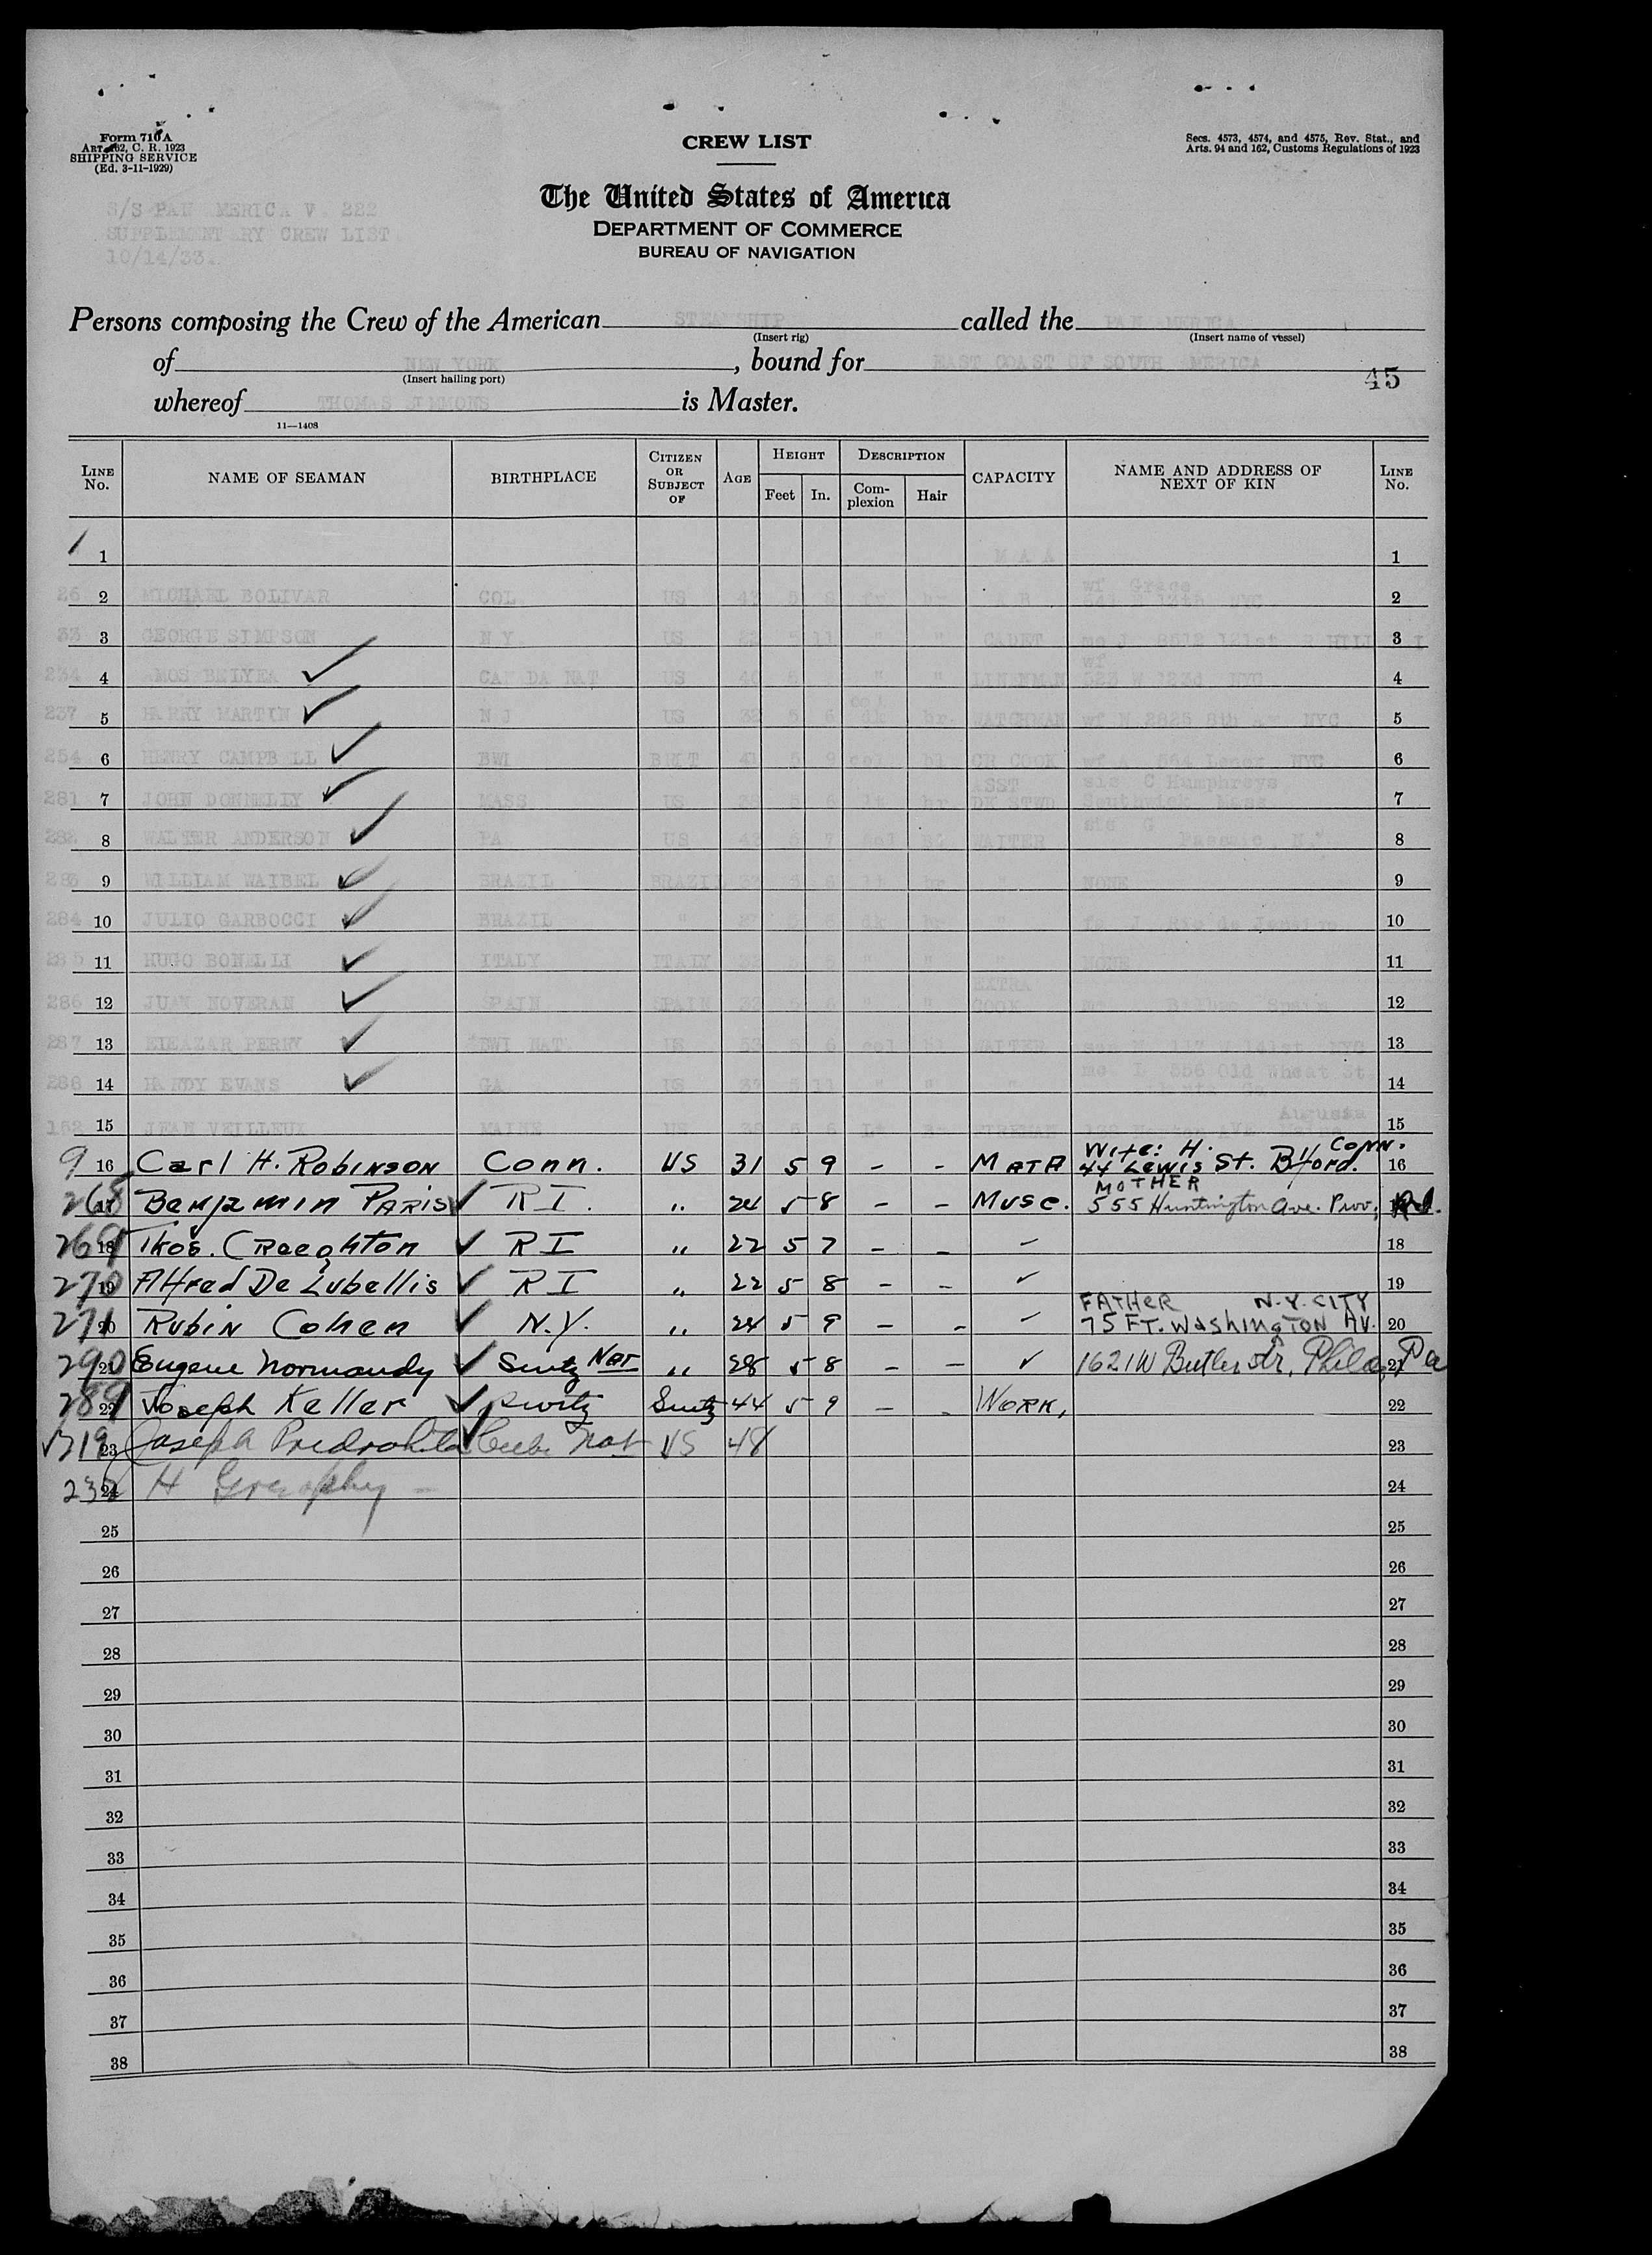 Form 710 A
ART. 162, C. R. 1923
SHIPPING SERVICE
(Ed. 3-11-1929)
CREW LIST
Secs. 4573, 4574, and 4575, Rev. Stat., and
Arts. 94 and 162, Customs Regulations of 1923
The United States of America
DEPARTMENT OF COMMERCE
BUREAU OF NAVIGATION
S/S PAN AMERICA V. 222
SUPPLEMENTARY CREW LIST
10/14/33.
Persons composing the Crew of the American STEAMSHIP called the PAN AMERICA
(Insert rig) (Insert name of vessel)
of NEW YORK, bound for EAST COAST OF SOUTH AMERICA
(Insert hailing port)
45
whereof THOMAS SIMMONS is Master.
11—1408
LINE No. NAME OF SEAMAN BIRTHPLACE CITIZEN OR SUBJECT OF AGE HEIGHT Feet In. DESCRIPTION Complexion Hair CAPACITY NAME AND ADDRESS OF NEXT OF KIN LINE No.
1 M A A 1
26 2 MICHAEL BOLIVAR COL US 47 5 8 fr br A B wf Grace 12th NYC 2
33 3 GEORGE SIMPSON N Y US 22 5 11 " " CADET mo J 8512 121st R HILL 3
234 4 AMOS BELYEA CANADA NAT US 40 5 " " LINENMAN wf 523 W 123d NYC 4
237 5 HARRY MARTIN N J US 32 5 6 dk br. WATCHMAN wf N 2825 8th av NYC 5
254 6 HENRY CAMPBELL BWI BRIT 41 5 9 col bl CR COOK wf A 564 Lenox NYC 6
281 7 JOHN DONNELLY MASS US 5 6 lt br ASST DK STWD sis C Humphreys Southwick Mass 7
282 8 WALTER ANDERSON PA US 43 5 7 col bl WAITER sis G 8
283 9 WILLIAM WAIBEL BRAZIL BRAZIL 5 6 lt br " NONE 9
284 10 JULIO GARBOCCI BRAZIL " 5 6 dk br " fa J. Rio de Janeiro 10
285 11 HUGO BONELLI ITALY ITALY 5 5 " " " NONE 11
286 12 JUAN NOVERAN SPAIN SPAIN 32 5 6 " " EXTRA COOK mo Bilbao Spain 12
287 13 ELEAZAR PERRY BWI NAT US 53 5 6 col bl WAITER 117 W 141st NYC 13
288 14 HANDY EVANS GA US 37 5 11 " " " mo L 556 Old Wheat St. Atlanta Ga 14
152 15 JEAN VEILLEUX MAINE US 5 6 Lt Br FIREMAN AVE Augusta Maine 15
9 16 Carl H. Robinson Conn. US 31 5 9 - - Wife: H. 44 Lewis St. Conn. 16
268 17 Benjamin Paris RI. " 24 5 8 - - Musc. Mother 555 Huntington Ave. Prov; R.I.
269 18 Thos. Creeghton RI " 22 5 7 - - ✓ 18
270 19 Alfred De Lubellis RI " 22 5 8 - - ✓ 19
271 20 Rubin Cohen N.Y. " 24 5 9 - - ✓ Father N.Y. City 75 Ft. Washington Av. 20
290 21 Eugene Normandy Swtz Nat " 28 5 8 - - ✓ 1621 W Butler str, Phila, Pa 21
289 22 Joseph Keller Switz Switz 44 5 9 - - Work, 22
319 23 Joseph Cuba Nat US 48 23
232 24 H 24
25 25
26 26
27 27
28 28
29 29
30 30
31 31
32 32
33 33
34 34
35 35
36 36
37 37
38 38